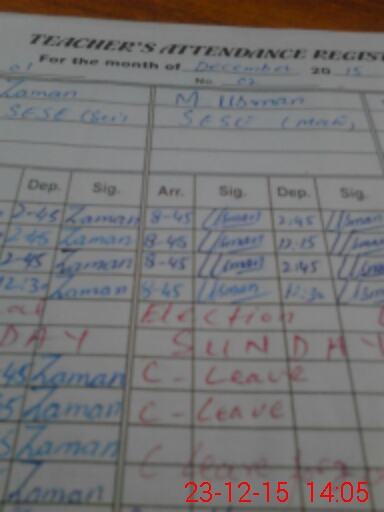 TEACHER'S ATTENDANCE REGIS
For the month of December 20 15
No. 02
Zaman M Usman
SESE (Sci) SESE (Math)
Dep. Sig. Arr. Sig. Dep. Sig.
2-45 Zaman 8-45 Usman 2:45 Usman
2-45 Zaman 8-45 Usman 12:15 Usman
2-45 Zaman 8-45 Usman 2:45 Usman
12:30 Zaman 8-45 Usman 12:30 Usman
Election
DAY SUNDAY
45 Zaman C - Leave
5 Zaman C - Leave
5 Zaman
C Leave
Zaman
23-12-15 14:05